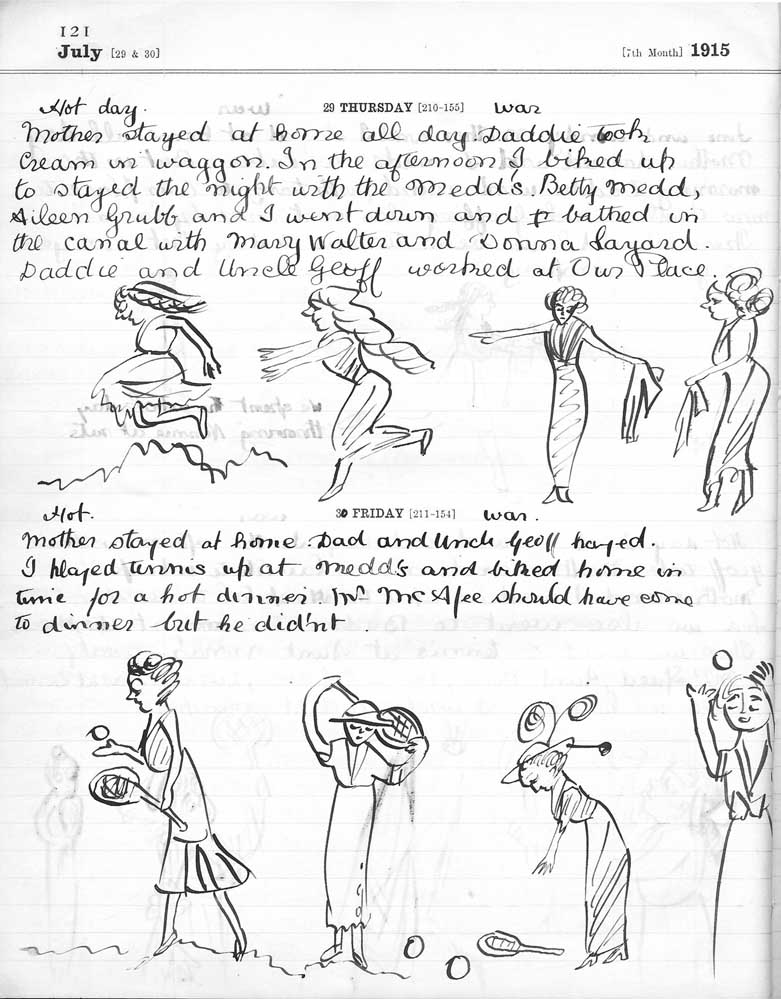 121
July [29 & 30] [7th Month] 1915
Hot day. 29 THURSDAY [210-155] war
Mother stayed at home all day. Daddie took
cream in waggon. In the afternoon I biked up
to stayed the night with the Medd's. Betty Medd,
Aileen Grubb and I went down and I bathed in
the canal with Mary Walter and Donna Layard.
Daddie and Uncle Geoff worked at Our Place.
Hot. 30 FRIDAY [211-154] war.
Mother stayed at home. Dad and Uncle Geoff hayed.
I played tennis up at Medd's and biked home in
time for a hot dinner. Mr McAfee should have come
to dinner but he did'nt.